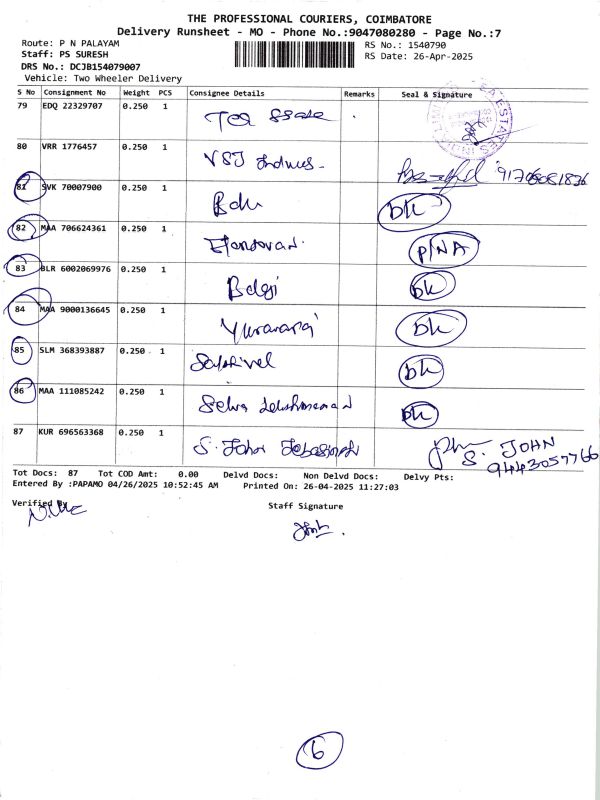 THE PROFESSIONAL COURIERS, COIMBATORE
Delivery Runsheet - MO - Phone No.:9047080280 - Page No.:7
Route: P N PALAYAM
RS No.: 1540790
Staff: PS SURESH
RS Date: 26-Apr-2025
DRS No.: DCJB154079007
Vehicle: Two Wheeler Delivery
S No Consignment No Weight PCS Consignee Details Remarks Seal & Signature
79 EDQ 22329707 0.250 1
ESTATES
80 VRR 1776457 0.250 1 VST
81 SVK 70007900 0.250 1 dk
82 MAA 706624361 0.250 1 P/NA
83 BLR 6002069976 0.250 1 Balaji dk
84 MAA 9000136645 0.250 1 Yuvaraj dk
85 SLM 368393887 0.250 1 dk
86 MAA 111085242 0.250 1 Selva Lakshmanan dk
87 KUR 696563368 0.250 1 S. John Jebasingh S. JOHN
9443057766
Tot Docs: 87 Tot COD Amt: 0.00 Delvd Docs: Non Delvd Docs: Delvy Pts:
Entered By :PAPAMO 04/26/2025 10:52:45 AM Printed On: 26-04-2025 11:27:03
Verified By
Staff Signature
6